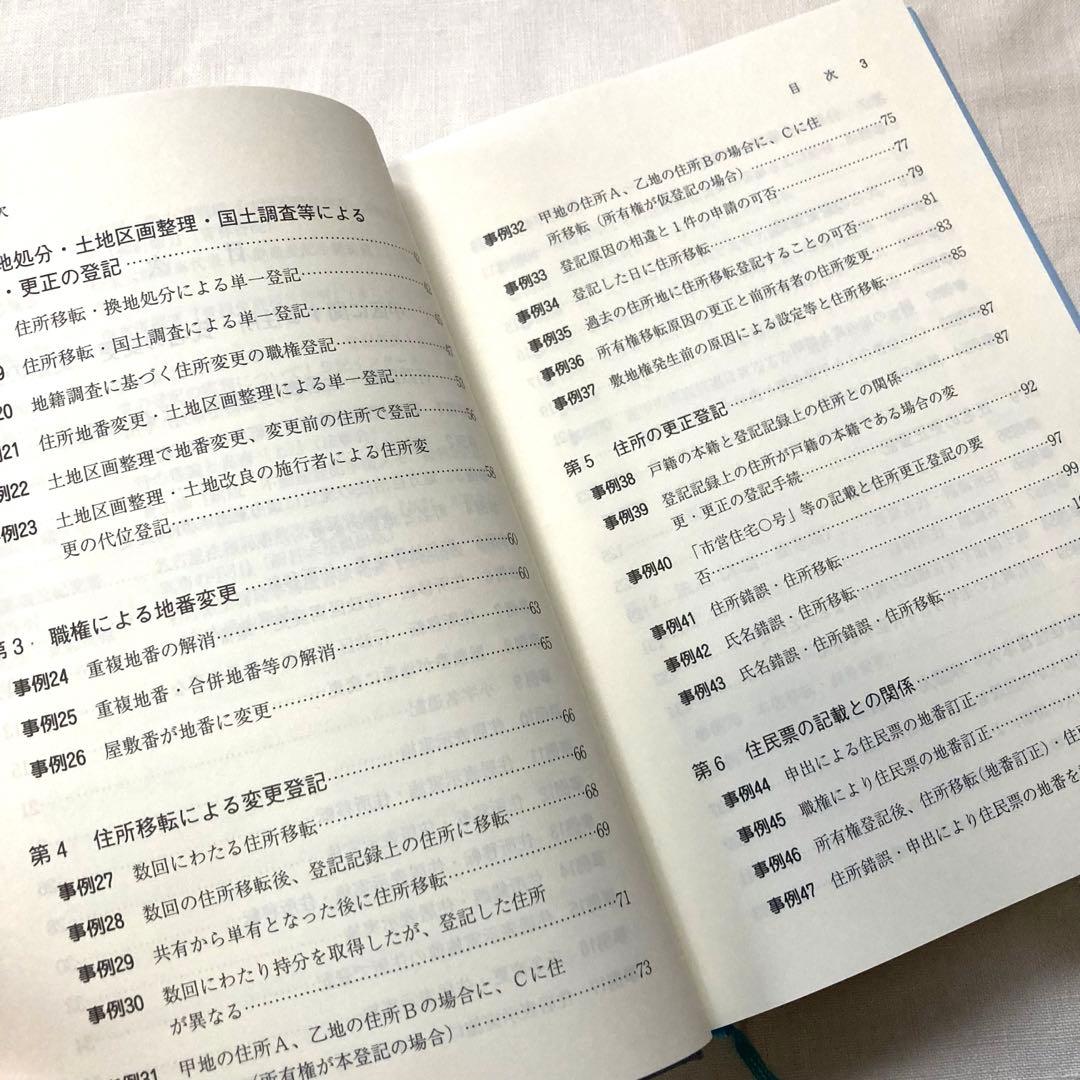 次
地処分・土地区画整理・国土調査等による
・更正の登記
住所移転・換地処分による単一登記
9 住所移転・国土調査による単一登記
20 地籍調査に基づく住所変更の職権登記
例21 住所地番変更・土地区画整理による単一登記……53
例22 土地区画整理で地番変更、変更前の住所で登記……56
事例23 土地区画整理・土地改良の施行者による住所変
更の代位登記……58
第3 職権による地番変更……60
事例24 重複地番の解消……60
事例25 重複地番・合併地番等の解消……63
事例26 屋敷番が地番に変更……65
第4 住所移転による変更登記……66
事例27 数回にわたる住所移転……66
事例28 数回の住所移転後、登記記録上の住所に移転……68
事例29 共有から単有となった後に住所移転……69
事例30 数回にわたり持分を取得したが、登記した住所
が異なる……71
事例31 甲地の住所A、乙地の住所Bの場合に、Cに住
（所有権が本登記の場合）……73
目次 3
事例32 甲地の住所A、乙地の住所Bの場合に、Cに住
所移転（所有権が仮登記の場合）……75
事例33 登記原因の相違と1件の申請の可否……77
事例34 登記した日に住所移転……79
事例35 過去の住所地に住所移転登記することの可否……81
事例36 所有権移転原因の更正と前所有者の住所変更……83
事例37 敷地権発生前の原因による設定等と住所移転……85
第5 住所の更正登記……87
事例38 戸籍の本籍と登記記録上の住所との関係……87
事例39 登記記録上の住所が戸籍の本籍である場合の変
更・更正の登記手続……92
事例40 「市営住宅○号」等の記載と住所更正登記の要
否……97
事例41 住所錯誤・住所移転……99
事例42 氏名錯誤・住所移転
事例43 氏名錯誤・住所錯誤・住所移転
第6 住民票の記載との関係
事例44 申出による住民票の地番訂正
事例45 職権により住民票の地番訂正
事例46 所有権登記後、住所移転（地番訂正）・住
事例47 住所錯誤・申出により住民票の地番を